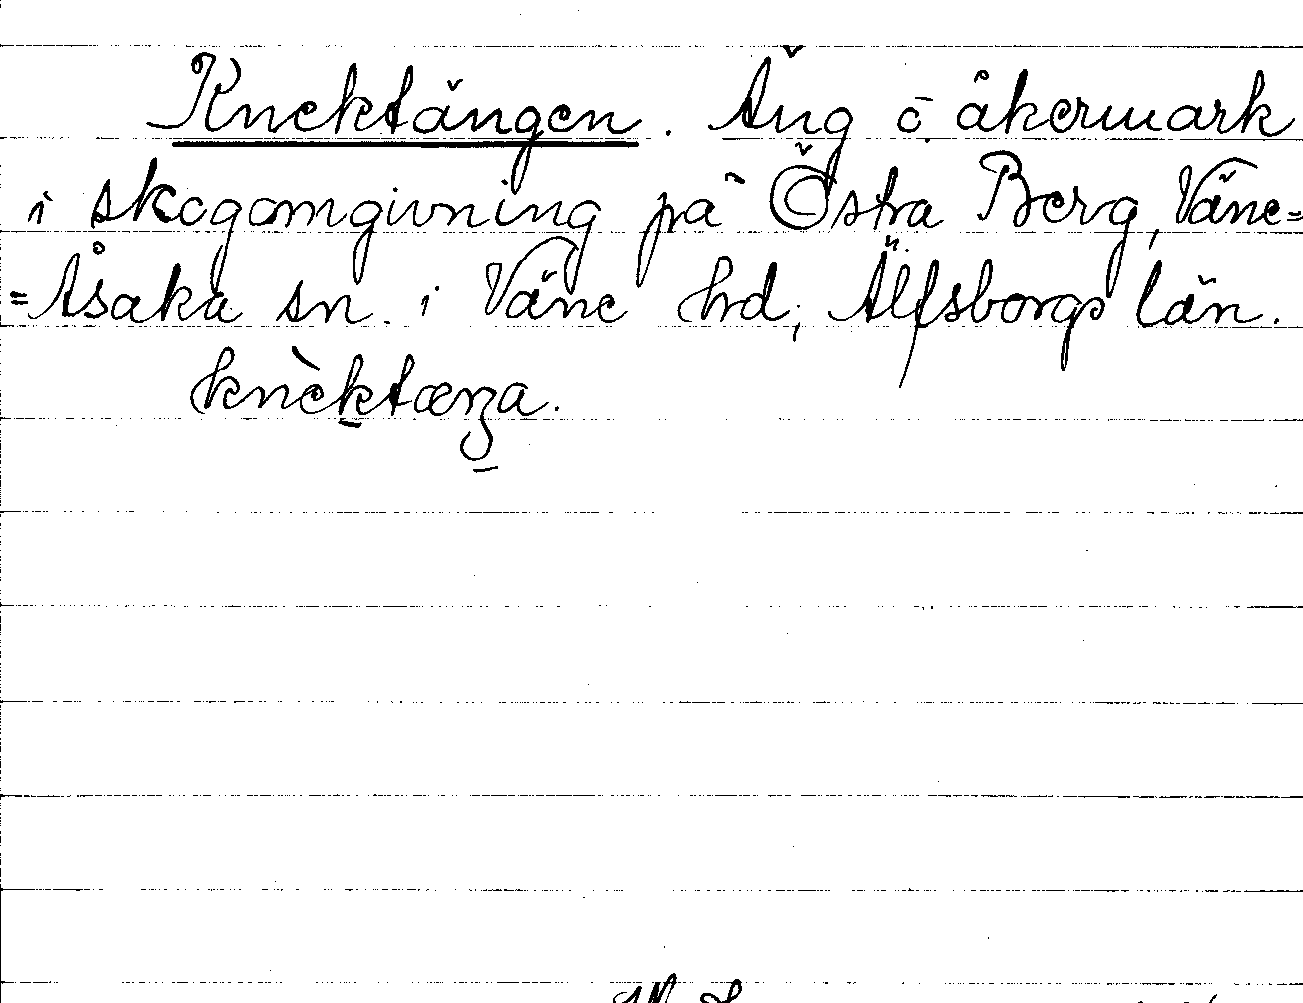 Knektängen. Äng o. åkermark
i skogomgivning på Östra Berg, Väne=
=Åsaka sn. i Väne hd, Älfsborgs län.